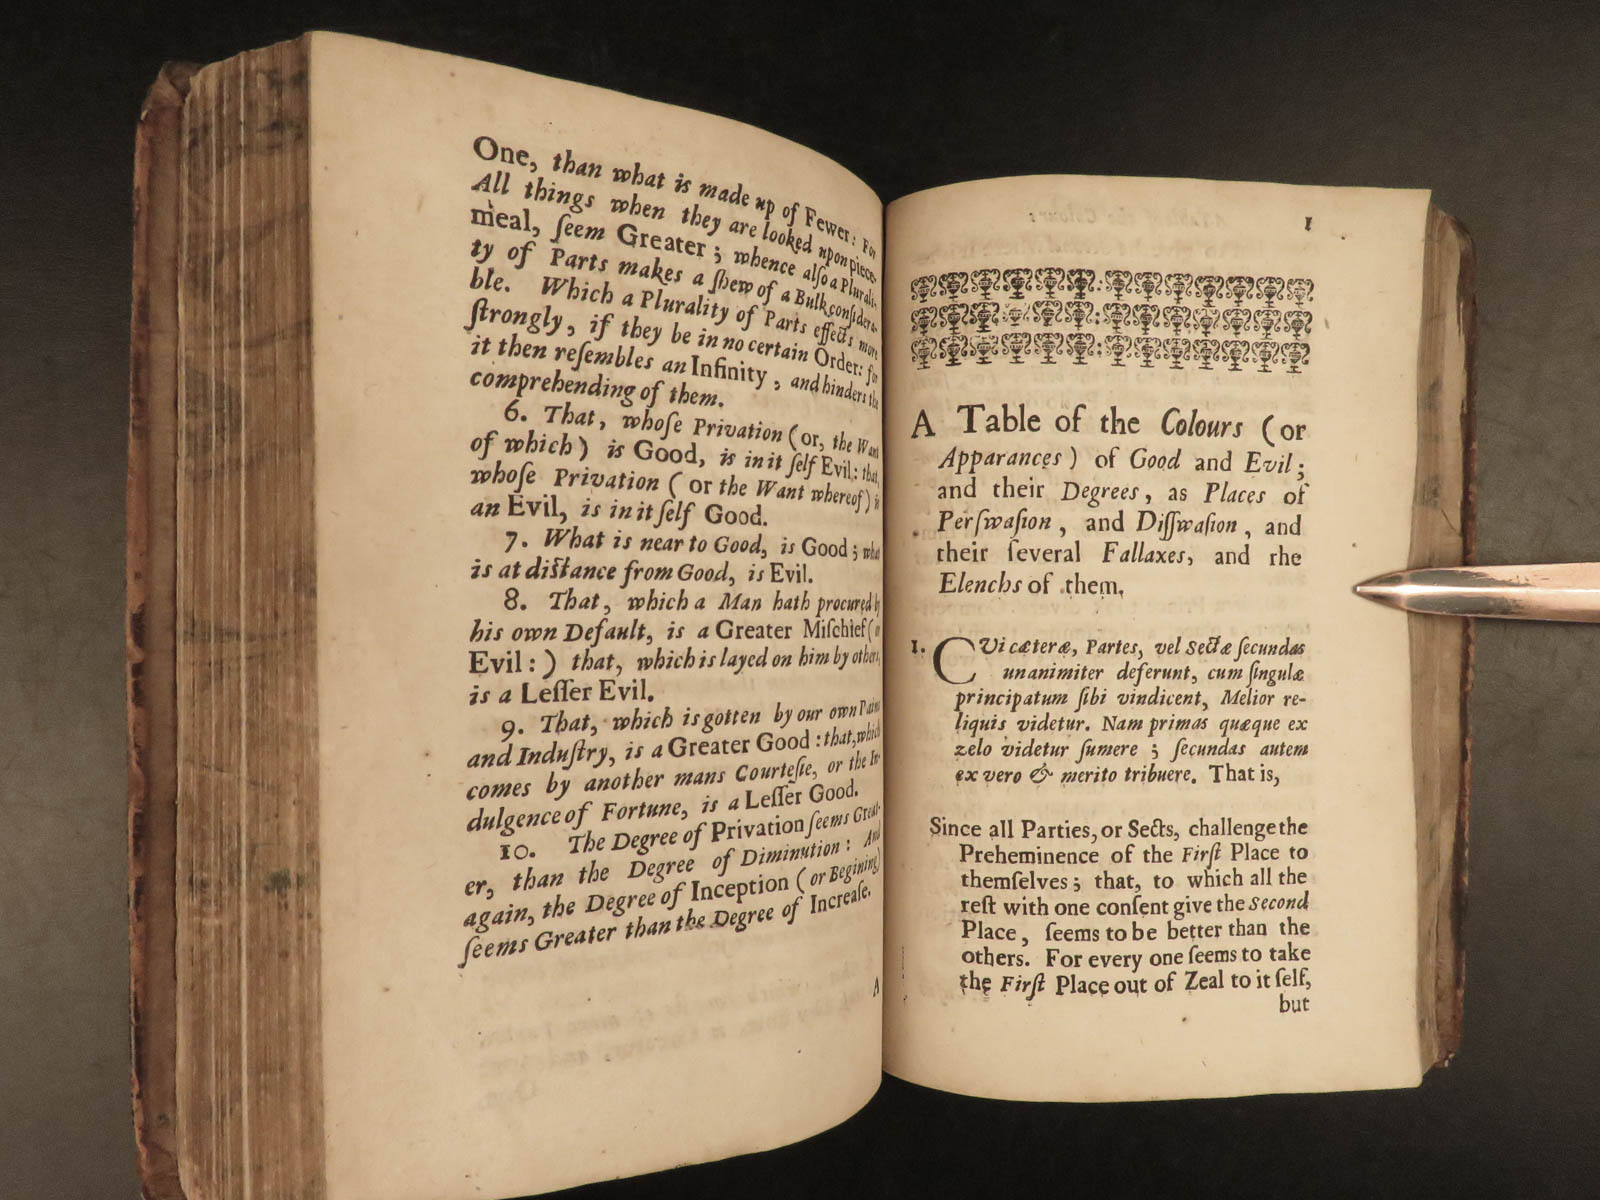 One, than what is made up of Fewer: For
All things when they are looked upon piece-
meal, ſeem Greater; whence alſo a Plurali-
ty of Parts makes a ſhew of a Bulk conſidera-
ble. Which a Plurality of Parts effects more
ſtrongly, if they be in no certain Order: for
it then reſembles an Infinity, and hinders the
comprehending of them.
6. That, whoſe Privation (or, the Want
of which) is Good, is in it ſelf Evil: that,
whoſe Privation (or the Want whereof) is
an Evil, is in it ſelf Good.
7. What is near to Good, is Good; what
is at diſtance from Good, is Evil.
8. That, which a Man hath procured by
his own Default, is a Greater Miſchief (or
Evil:) that, which is layed on him by others,
is a Leſſer Evil.
9. That, which is gotten by our own Pains
and Induſtry, is a Greater Good: that, which
comes by another mans Courteſie, or the In-
dulgence of Fortune, is a Leſſer Good.
10. The Degree of Privation ſeems Great-
er, than the Degree of Diminution: And
again, the Degree of Inception (or Begining)
ſeems Greater than the Degree of Increaſe.
A
1
A Table of the Colours (or
Apparances) of Good and Evil;
and their Degrees, as Places of
Perſwaſion, and Diſſwaſion, and
their ſeveral Fallaxes, and rhe
Elenchs of them.
1. CUi cæteræ, Partes, vel Sectæ ſecundas
unanimiter deferunt, cum ſingulæ
principatum ſibi vindicent, Melior re-
liquis videtur. Nam primas quæque ex
zelo videtur ſumere; ſecundas autem
ex vero & merito tribuere. That is,
Since all Parties, or Sects, challenge the
Preheminence of the Firſt Place to
themſelves; that, to which all the
reſt with one conſent give the Second
Place, ſeems to be better than the
others. For every one ſeems to take
the Firſt Place out of Zeal to it ſelf,
but